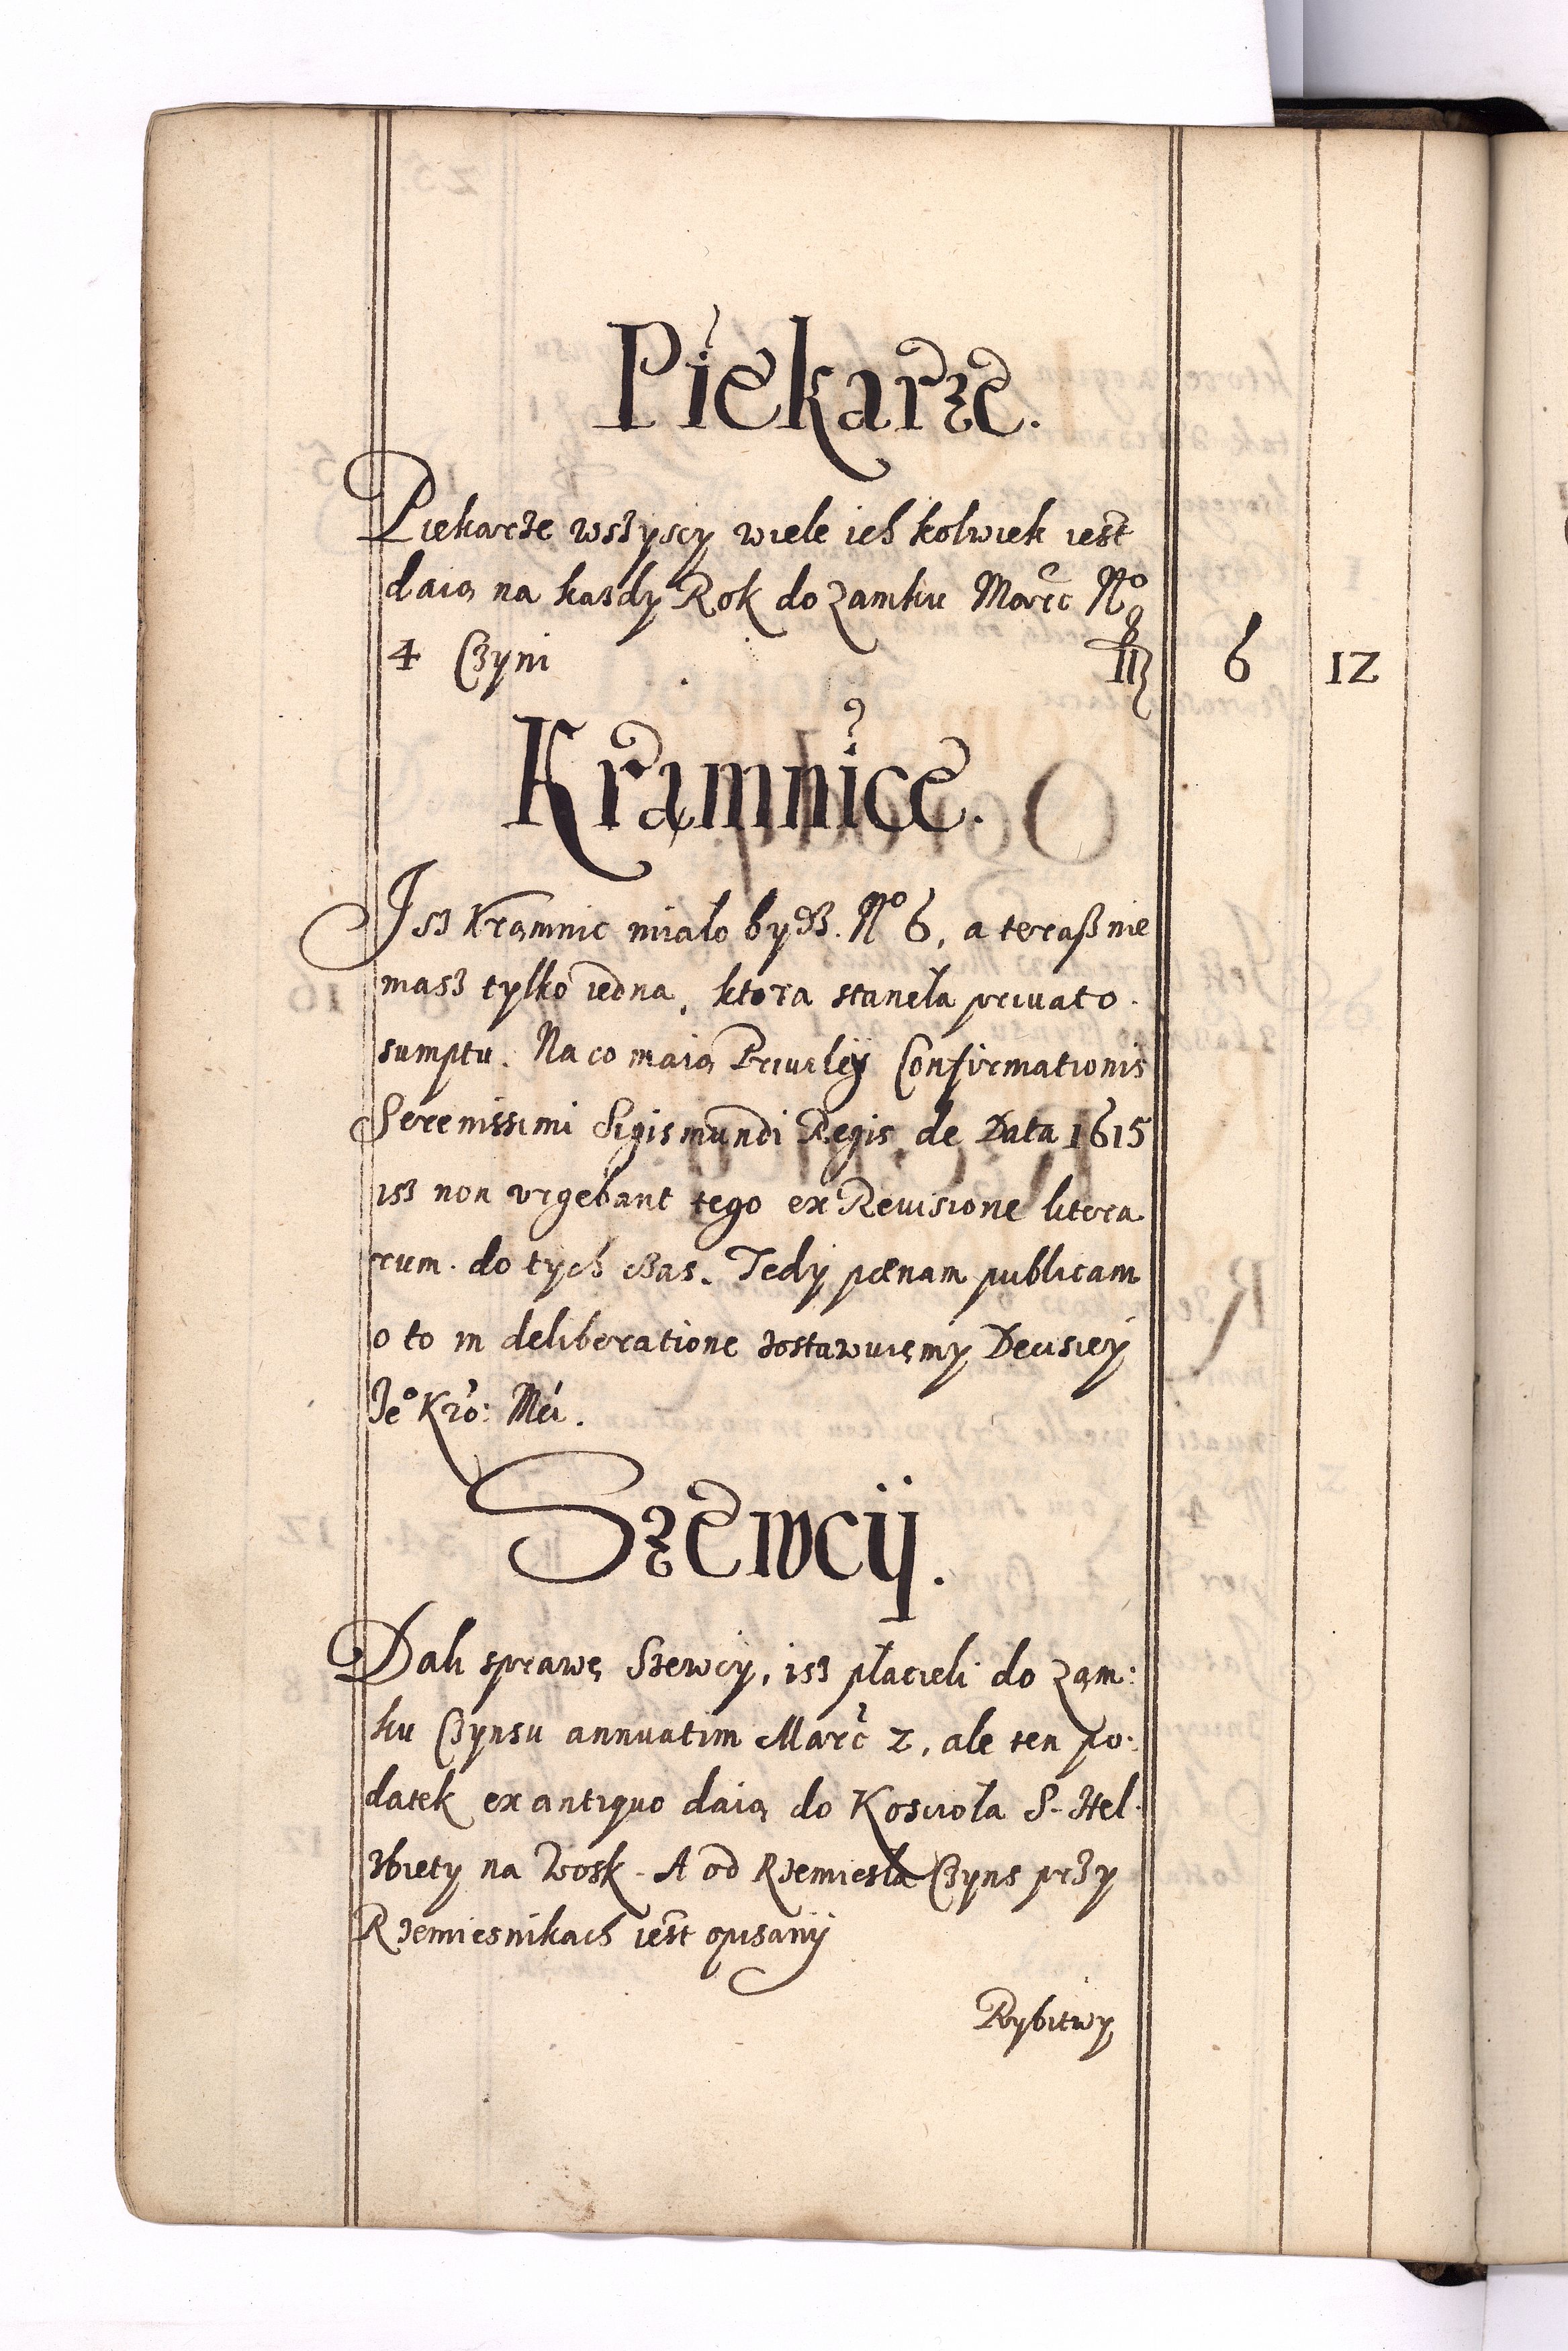 Piekarze.
Piekarze wszyscy wiele ich kolwiek iest
daią na kasdy Rok do zamku Marc No
4 Czyni fl 6 12
Kramnice.
Isz Kramnic mialo bydz. No 6, a teraß nie
masz tylko iedna, ktora staneła priuato
sumptu. Na co maią Priuiley Confirmationis
Serenissimi Sigismundi Regis de Data 1615
isz non vrgebant tego ex Reuisione litera
rum. do tych czas. Tedy pœnam publicam
o to in deliberatione zostawuięmy Decisiey
Je° Kro: Mci.
Szewcy.
Dali sprawę Szewcy, isz płacieli do zam:
ku Czynsu annuatim Marc 2, ale ten po:
datek ex antiquo daią do Koscioła S. Hel
zbiety na Wosk. A od Rzemiesła Czyns przy
Rzemiesnikach iest opisany
Rybitwy